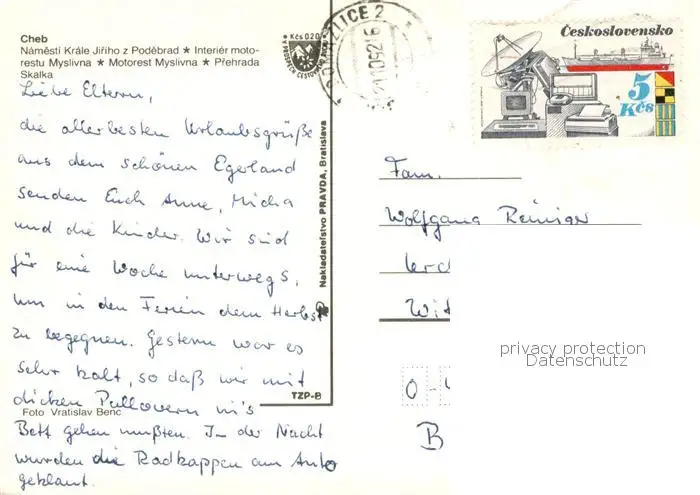 Cheb
Náměstí Krále Jiřího z Poděbrad ★ Interiér moto-
restu Myslivna ★ Motorest Myslivna ★ Přehrada
Skalka
Kčs 0,20
Liebe Eltern,
die allerbesten Urlaubsgrüße
aus dem schönen Egerland
senden Euch Anne, Micha
und die Kinder. Wir sind
für eine Woche unterwegs,
um in den Ferien dem Herbst
zu begegnen. Gestern war es
sehr kalt, so daß wir mit
dicken Pullovern in's
Bett gehen mußten. In der Nacht
wurden die Radkappen am Auto
geklaut.
Foto Vratislav Benc
Nakladateľstvo PRAVDA, Bratislava
TZP-B
Československo
5
Kčs
Fam.
Wolfgang Reiniger
Wit
O-4
B
privacy protection
Datenschutz